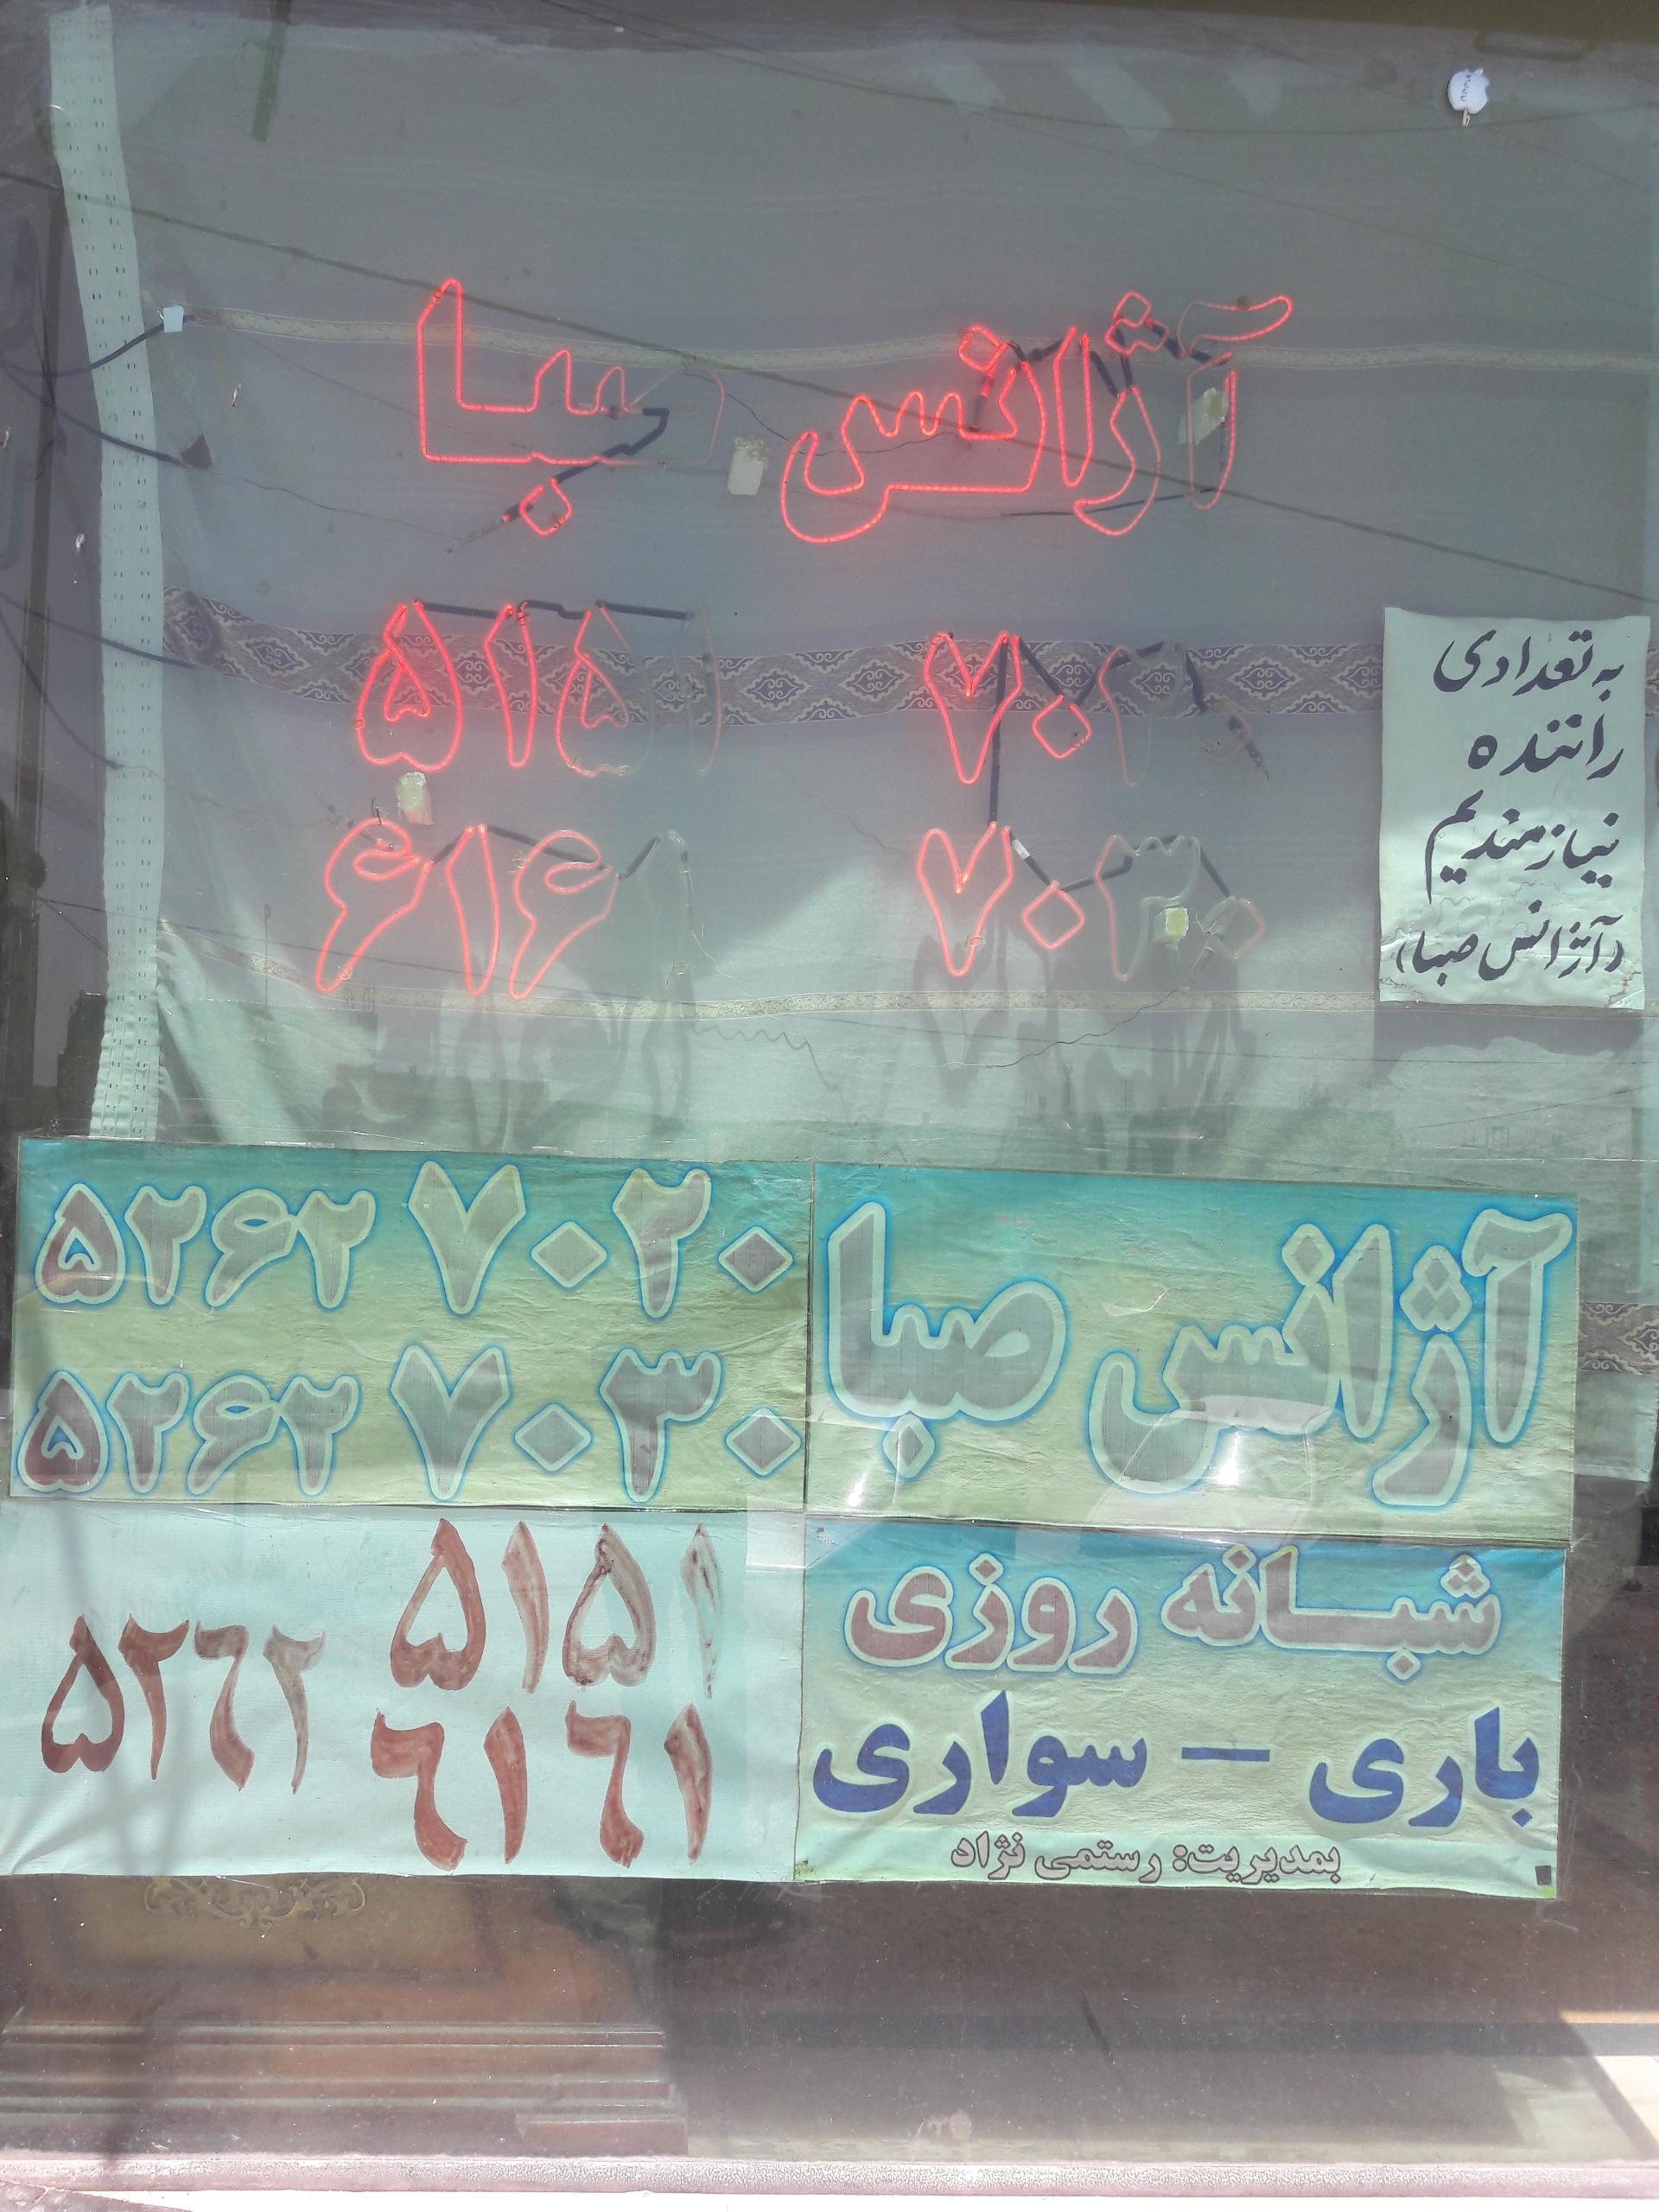 آژانس صبا
۷۰۲۰
۵۱۵۱
۷۰۳۰
۶۱۶۱
به تعدادی
راننده
نیازمندیم
(آژانس صبا)
آژانس صبا
۵۲۶۲ ۷۰۲۰
۵۲۶۲ ۷۰۳۰
شبانه روزی
باری - سواری
بمدیریت: رستمی نژاد
۵۲۶۲
۵۱۵۱
۶۱۶۱